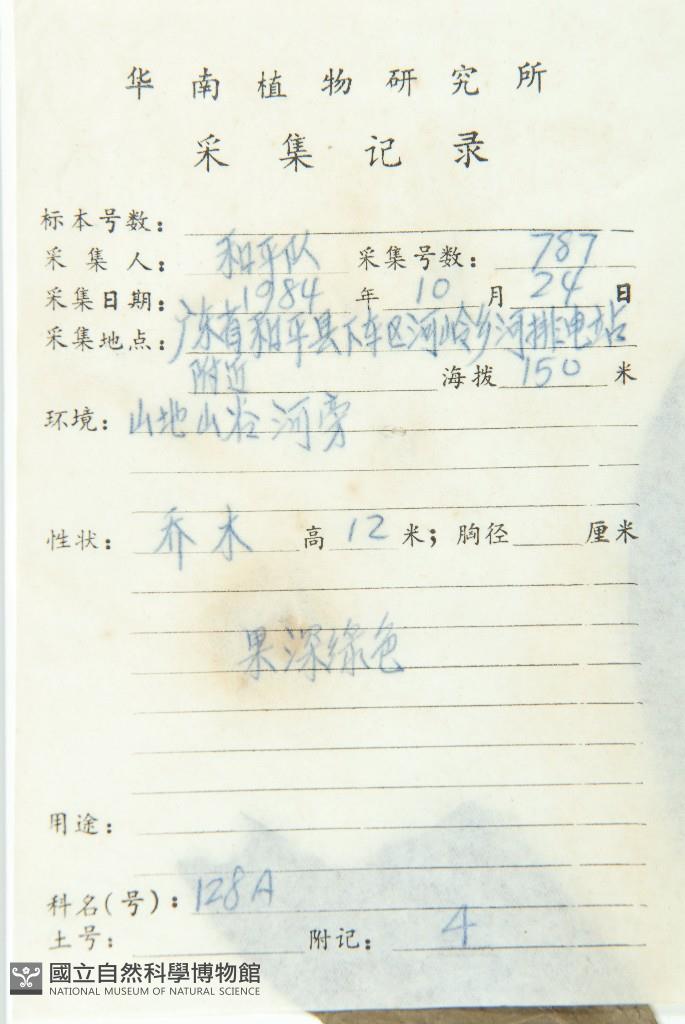 华南植物研究所
采集记录
标本号数：
采集人：和平队 采集号数：787
采集日期：1984年10月24日
采集地点：广东省和平县下车区河岭乡河排电站
附近 海拨150米
环境：山地山谷河旁
性状：乔木 高12米；胸径 厘米
果深绿色
用途：
科名(号)：128A
土号： 附记：4
國立自然科學博物館
NATIONAL MUSEUM OF NATURAL SCIENCE